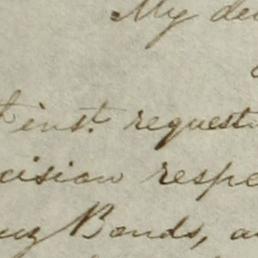 My de
inst. request
cision respe
Bonds, a